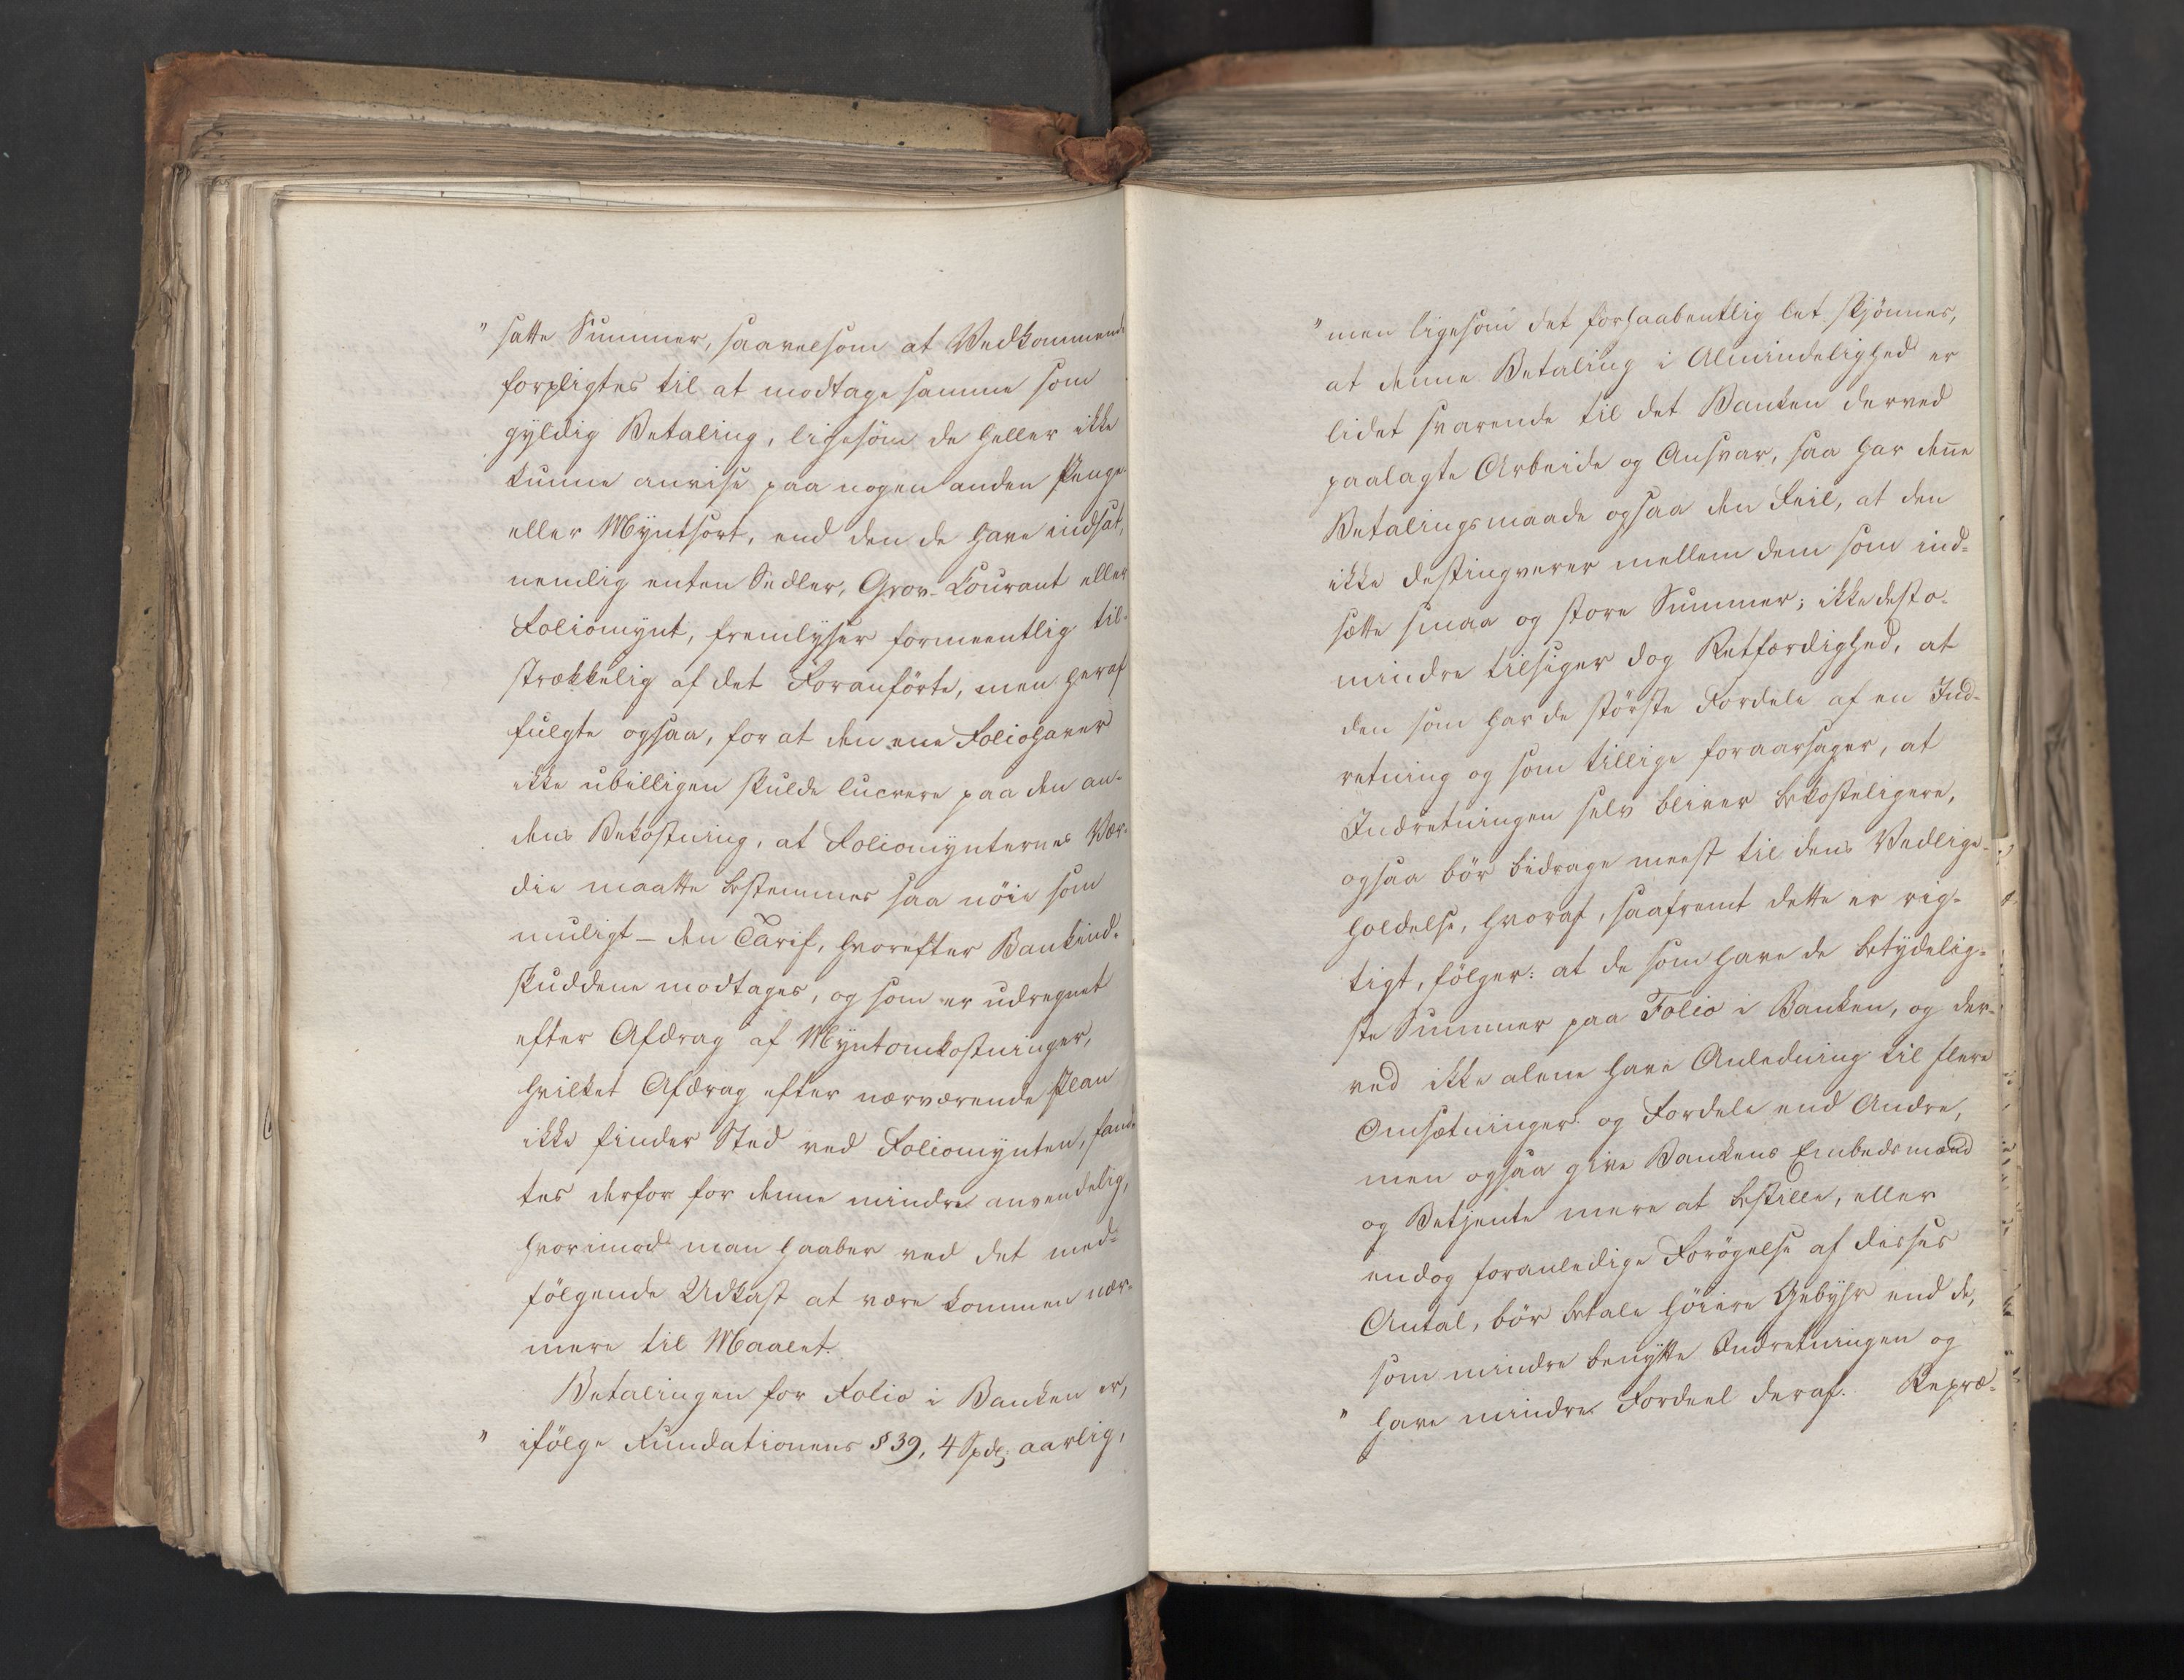 " satte Summer, saavelsom at Vedkommende
forpligtes til at modtage samme som
gyldig Betaling, ligesom de heller ikke
kunne anvise paa nogen anden Penge-
eller Myntsort, end den de have indsat,
nemlig enten Sedler, Grov-Courant eller
Foliomynt, fremlyser formeentlig til-
strækkelig af det Foranførte, men heraf
fulgte ogsaa, for at den ene Foliohaver
ikke ubilligen skulde lucrere paa den an-
dens Bekostning, at Foliomynternes Vær-
die maatte bestemmes saa nöie som
muligt – den Tarif, hvorefter Bankind-
skuddene modtages, og som er udregnet
efter Afdrag af Myntomkostninger,
hvilket Afdrag efter nærværende Plan
ikke finder Sted ved Foliomynten, fand-
tes derfor for denne mindre anvendelig,
hvorimod man haaber ved det med-
fölgende Udkast at være kommen nær-
mere til Maalet.
Betalingen for Folio i Banken er,
" ifölge Fundationens § 39, 4 Spd. aarlig,
" men ligesom det forhaabentlig let skjönnes,
at denne Betaling i Almindelighed er
lidet svarende til det Banken derved
paalagte Arbeide og Ansvar, saa har deñe
Betalingsmaade ogsaa den Feil, at den
ikke destingverer mellem dem som ind-
sætte smaa og store Summer; ikke desto-
mindre tilsiger dog Retfærdighed, at
den som har de störste Fordele af en Ind-
retning og som tillige foraarsager, at
Indretningen selv bliver bekosteligere,
ogsaa bör bidrage meest til dens Vedlige-
holdelse, hvoraf, saafremt dette er rig-
tigt, fölger: at de som have de betydelig-
ste Summer paa Folio i Banken, og der-
ved ikke alene have Anledning til flere
Omsætninger og Fordele end Andre,
men ogsaa give Bankens Embedsmænd
og Betjente mere at bestille, eller
endog foranledige Forögelse af disses
Antal, bör betale höiere Gebyhr end de,
som mindre benytte Indretningen og
" have mindre Fordeel deraf. Repræ-